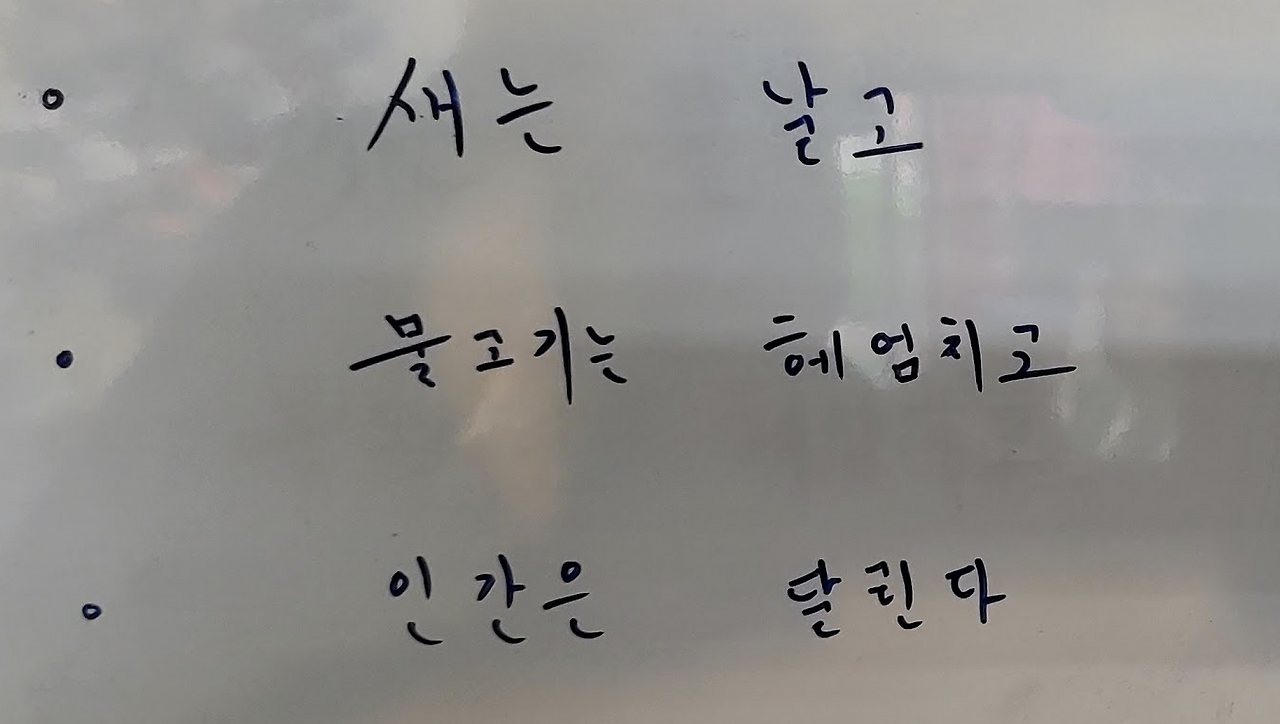 새는 날고
물고기는 헤엄치고
인간은 달린다